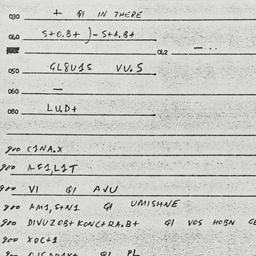 030 + GI IN THERE
040 S+O.B+ )-S+A.B+
012 -..
050 GL8U1S VU.S
060 -
080 LU.D+
900 C1NA.X
900 AE1,L1T
900 V1 GI AVU
900 AM1,S+N1 GI UMISHNE
900 DIVUZOB+ KONC+RA.B+ GI VOS HOBN GE
900 XOC+1